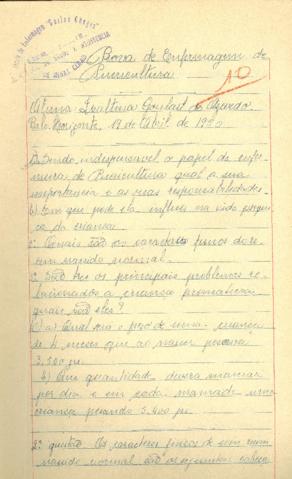 Escola de Enfermagem "Carlos Chagas"
Prova de Enfermagem de
Puericultura
10
Aluna Isaltina Goulart de Azevedo
Belo Horizonte, 19 de Abril de 1950
Sendo indispensavel o papel da enfer-
meira de Puericultura qual a sua
importancia e as suas responsabilidades.
b) Em que pode ela influir na vida psiqui-
ca da criança.
2º Quais são os caracteres fisicos do re-
cem nascido normal.
São tres os principais problemas re-
lacionados a criança prematura
quais são eles?
a) Qual será o peso de uma criança
de 4 meses que ao nascer pesava
3,500 gr.
b) Que quantidade devera mamar
por dia e em cada mamada uma
criança pesando 5.400 gr.
2ª questão. Os caracteres fisicos de um recem
nascido normal são os seguintes: cabeça